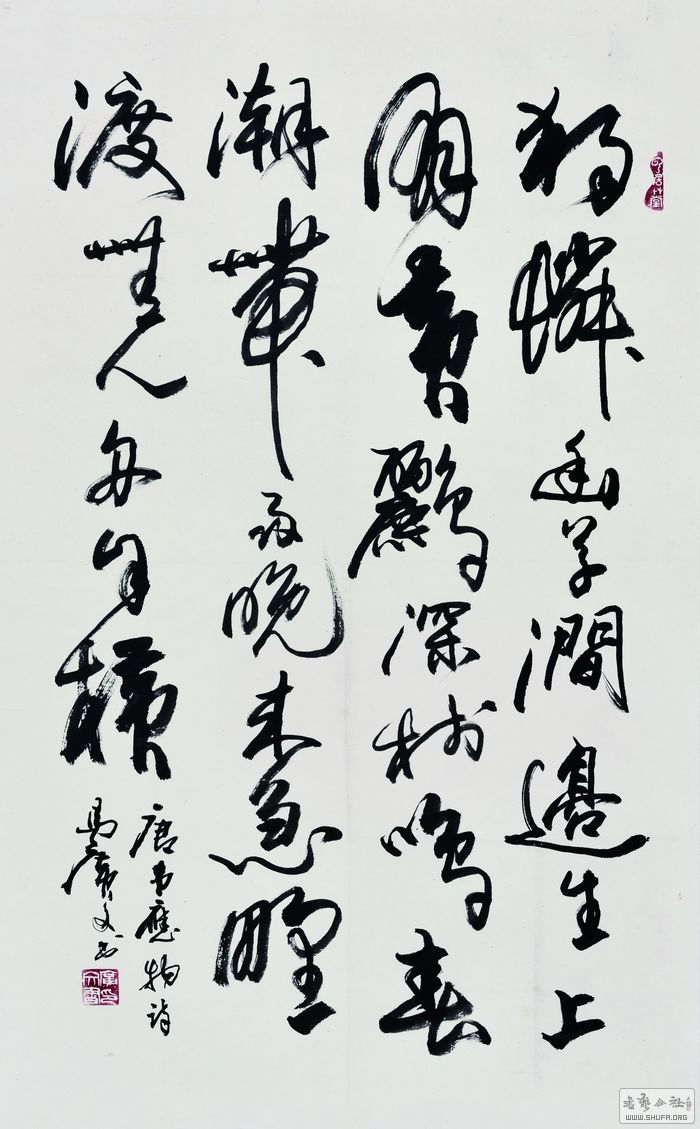 獨憐幽草澗邊生上
黄鸝深树鳴春
潮帶雨晚來急野
渡無人舟自横
唐韋應物詩
廣文书
書藝公社
WWW.SHUFA.ORG